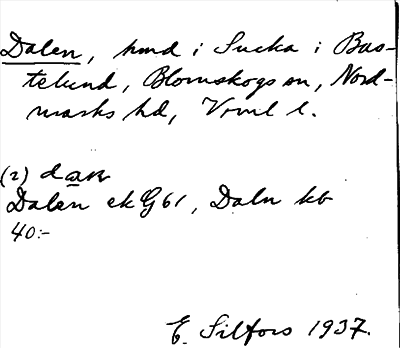 Dalen, hmd i Sucka i Bas-
telund, Blomskogs sn, Nord-
marks hd, Vrml l.
(2) dan
Dalen ek G61, Daln kb
40:-
E. Silfors 1937.